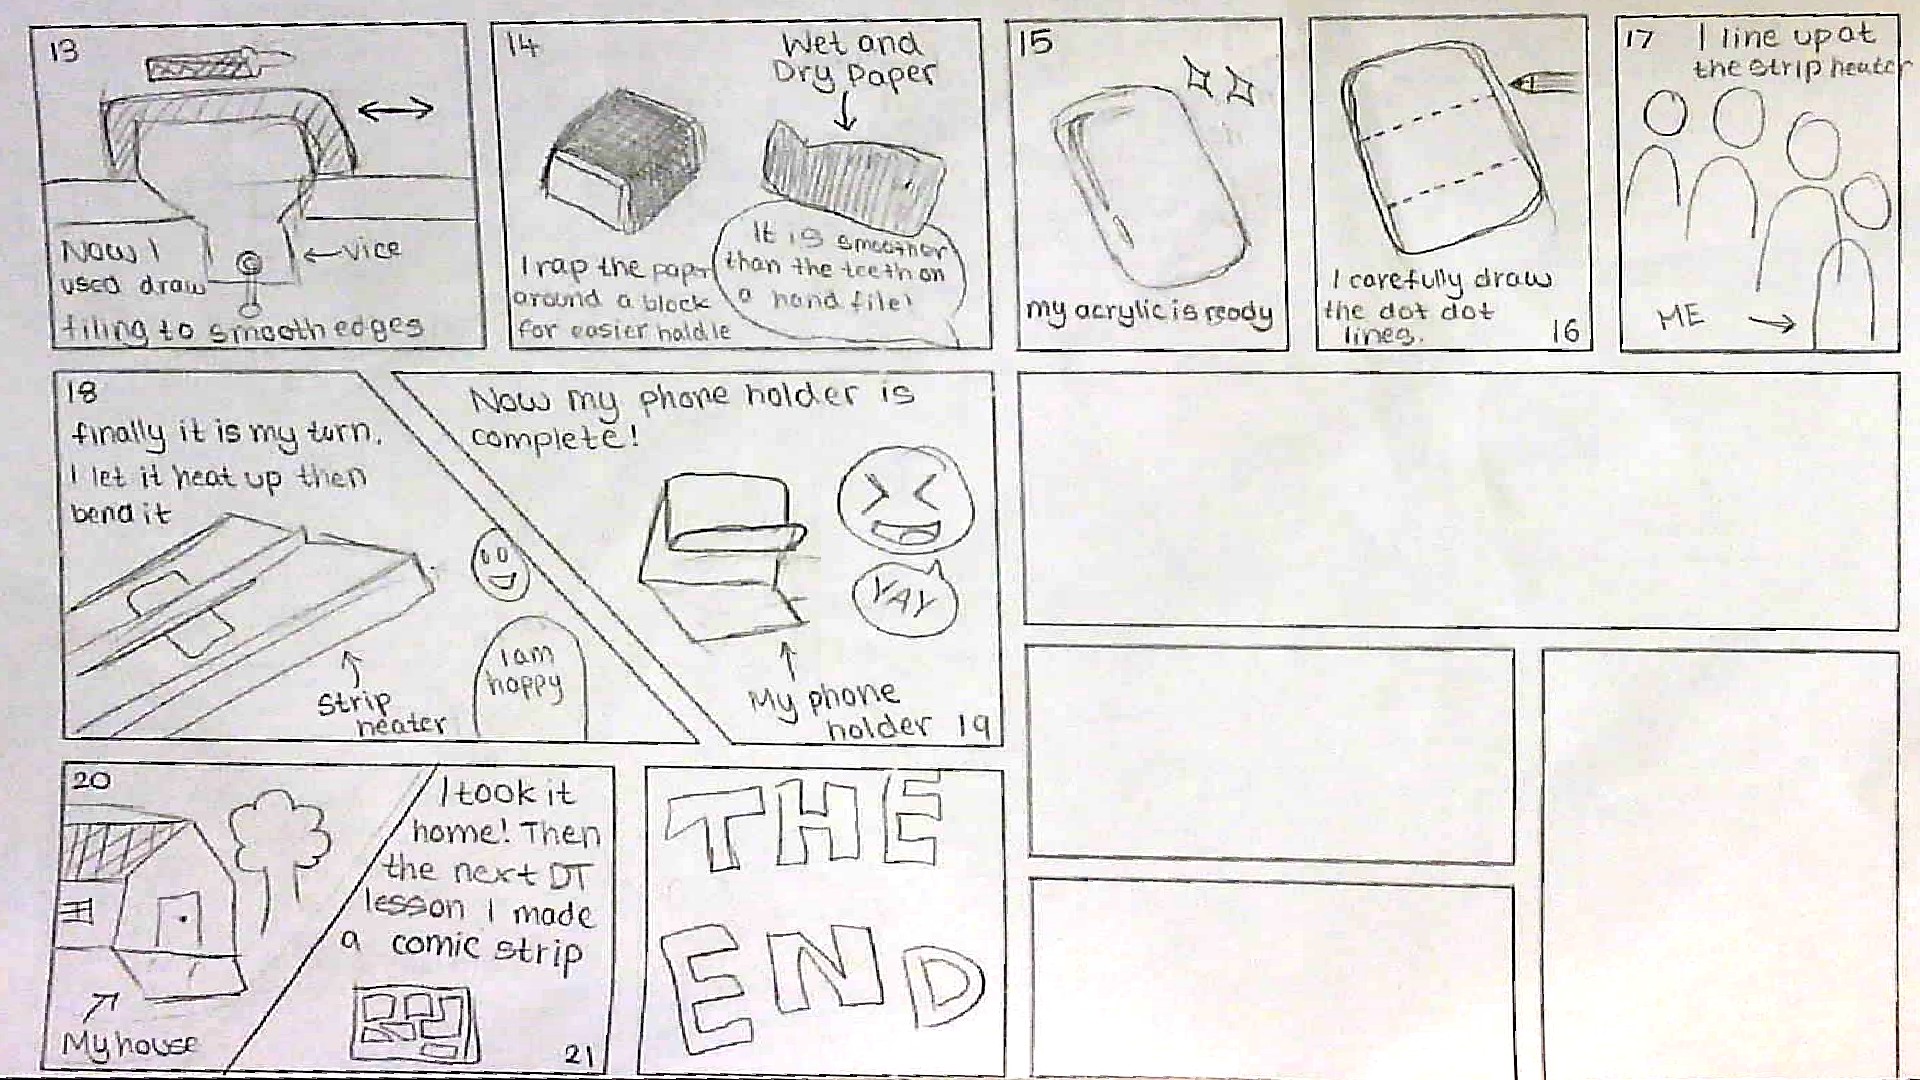 13
Now I
used draw
← vice
filing to smooth edges
14
Wet and
Dry Paper
I rap the paper
around a block
for easier holdle
It is smoother
than the teeth on
a hand file!
15
my acrylic is ready
I carefully draw
the dot dot
lines.
16
17
I line up at
the strip heater
ME
18
finally it is my turn.
I let it heat up then
bend it
Strip
heater
I am
happy
Now my phone holder is
complete!
YAY
My phone
holder
19
20
My house
I took it
home! Then
the next DT
lesson I made
a comic strip
21
THE
END